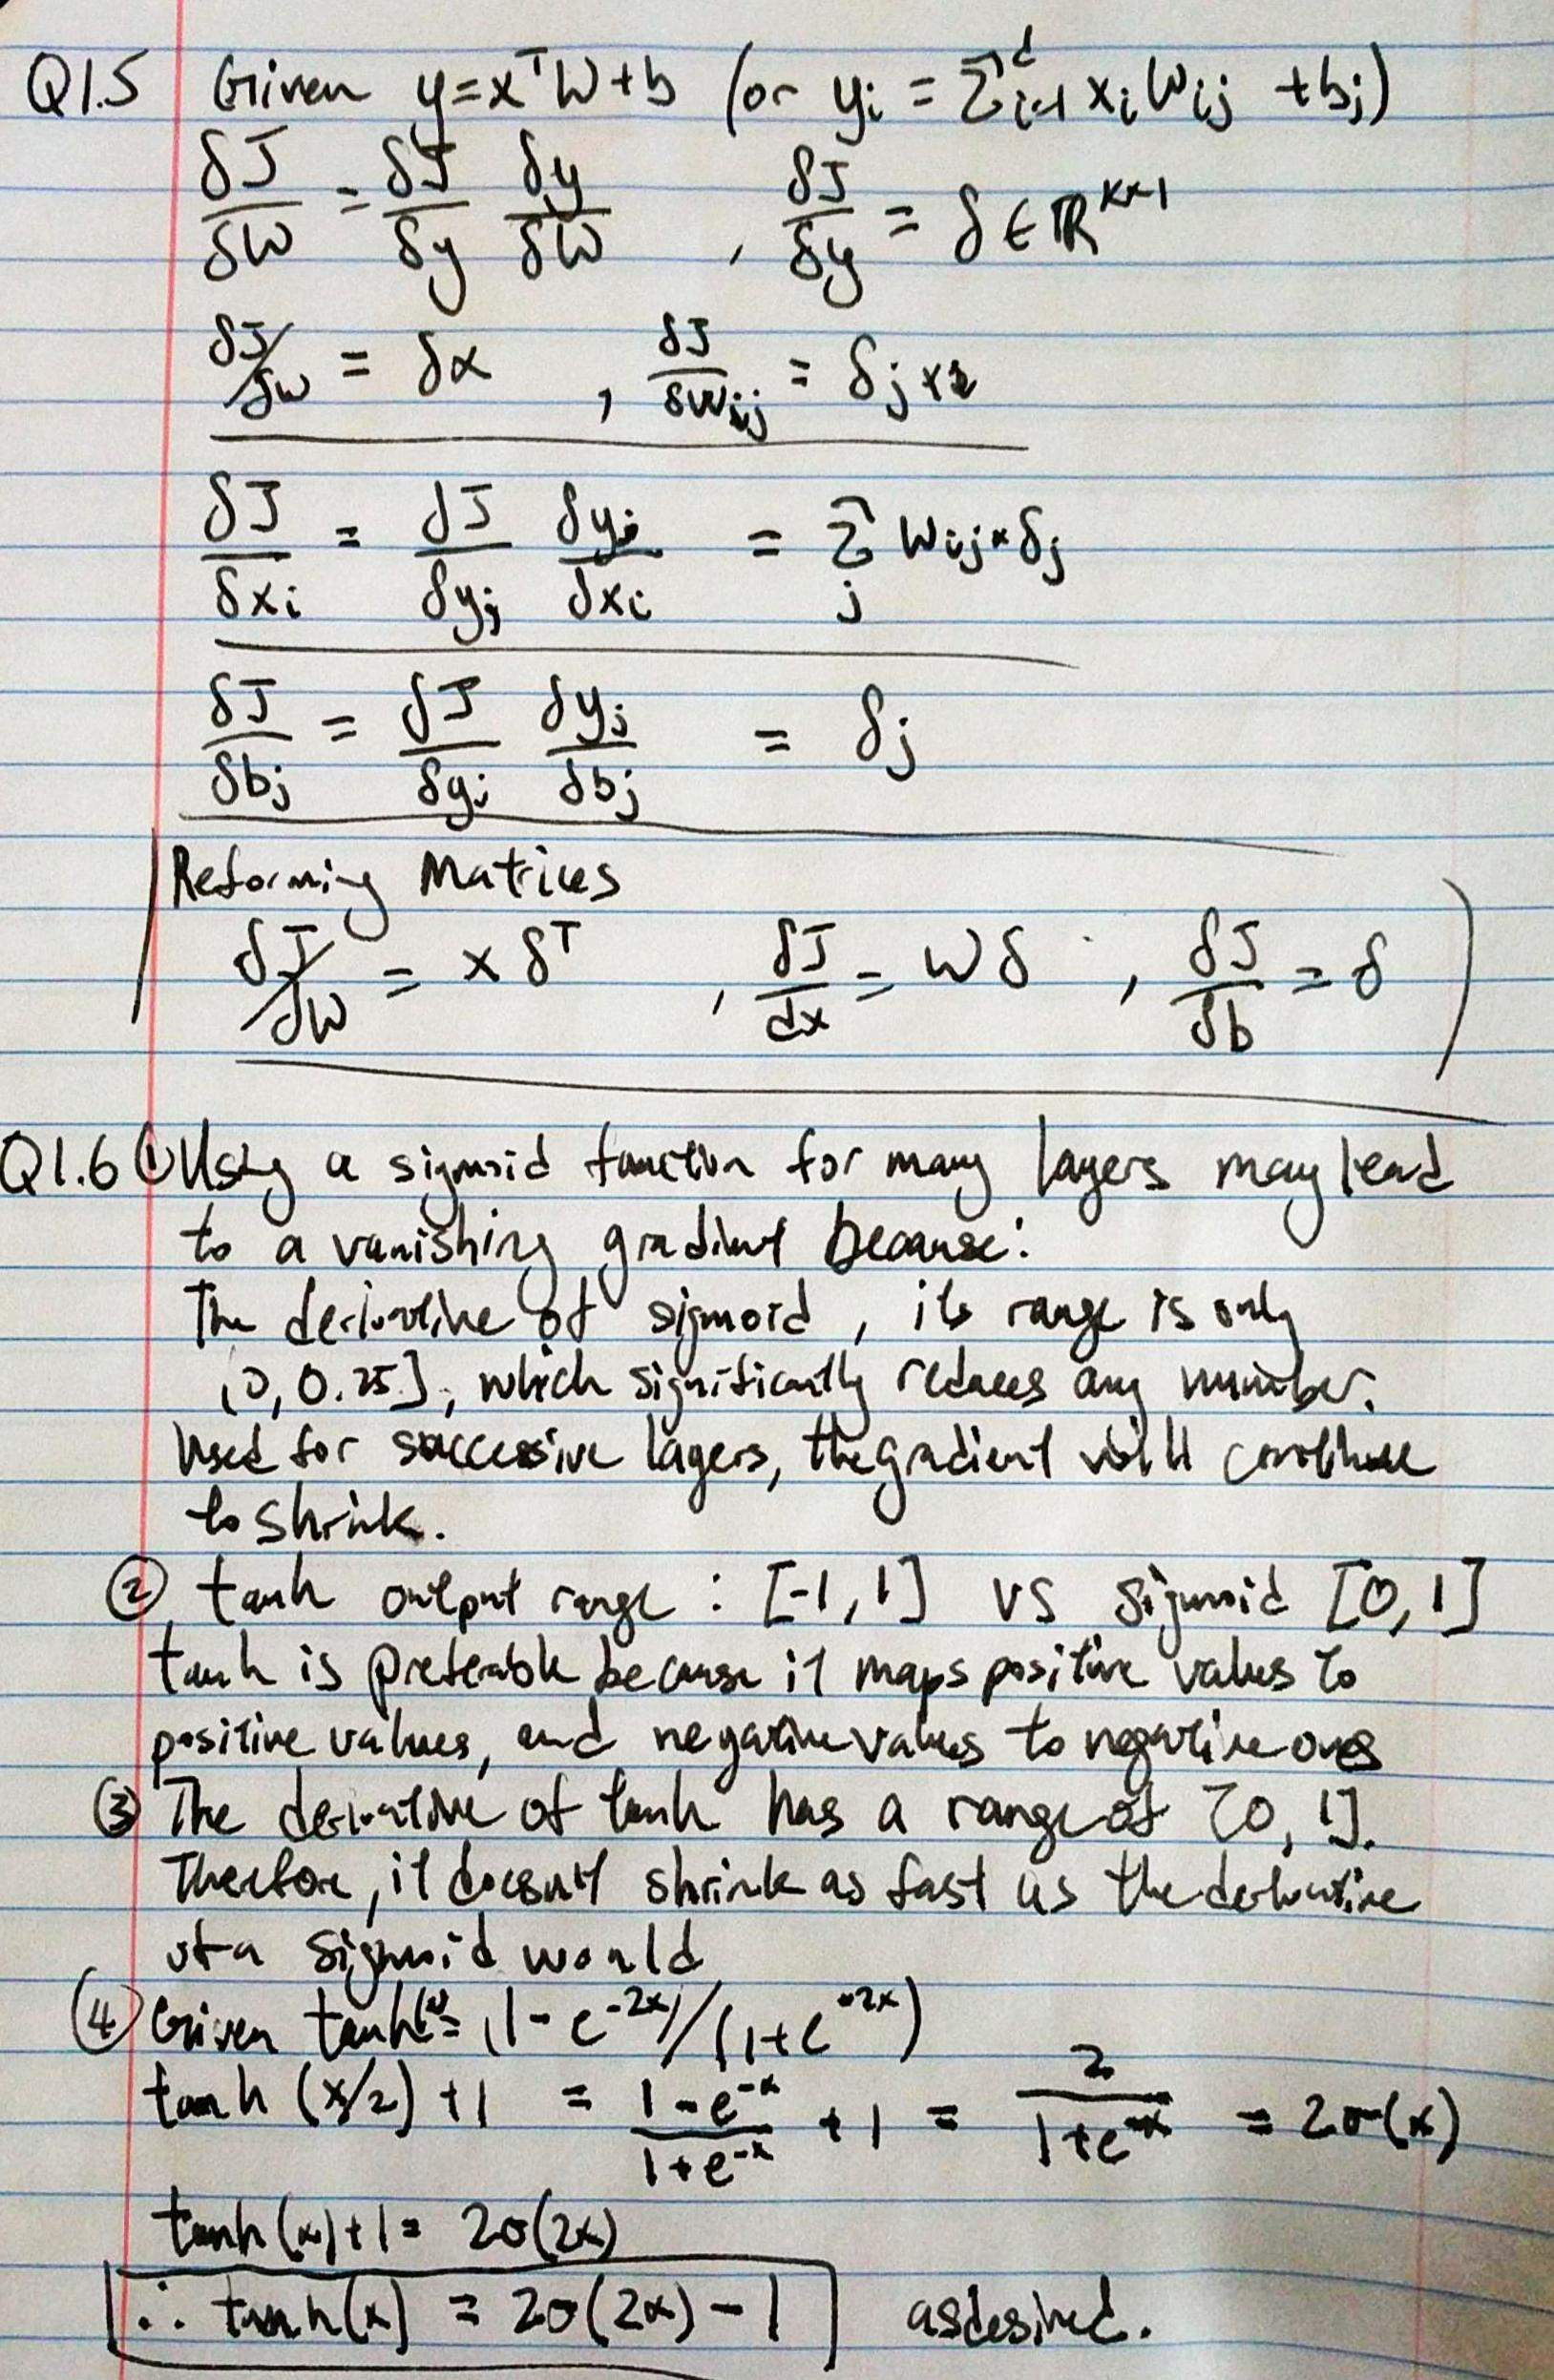 Q1.5 Given y=xᵀW+b (or yᵢ = Σᵈᵢ₌₁ xᵢWᵢⱼ +bⱼ)
δJ/δW = δJ/δy δy/δW , δJ/δy = δ ∈ ℝᵏˣ¹
δJ/δW = δx , δJ/δWᵢⱼ = δⱼxᵢ
δJ/δxᵢ = δJ/δyⱼ δyⱼ/δxᵢ = Σⱼ Wᵢⱼ * δⱼ
δJ/δbⱼ = δJ/δyⱼ δyⱼ/δbⱼ = δⱼ
Reforming Matrices
δJ/δW = x δᵀ , δJ/dx = W δ , δJ/δb = δ
Q1.6 ① Using a sigmoid function for many layers may lead
to a vanishing gradient because:
The derivative of sigmoid, its range is only
(0, 0.25], which significantly reduces any number.
Used for successive layers, the gradient will continue
to shrink.
② tanh output range : [-1, 1] vs sigmoid [0, 1]
tanh is preferable because it maps positive values to
positive values, and negative values to negative ones
③ The derivative of tanh has a range of [0, 1].
Therfore, it doesn't shrink as fast as the derivative
of a sigmoid would
④ Given tanh(x)= (1-e⁻²ˣ)/(1+e⁻²ˣ)
tanh (x/2) +1 = (1-e⁻ˣ)/(1+e⁻ˣ) + 1 = 2/(1+e⁻ˣ) = 2σ(x)
tanh(x)+1= 2σ(2x)
∴ tanh(x) = 2σ(2x) - 1 as desired.